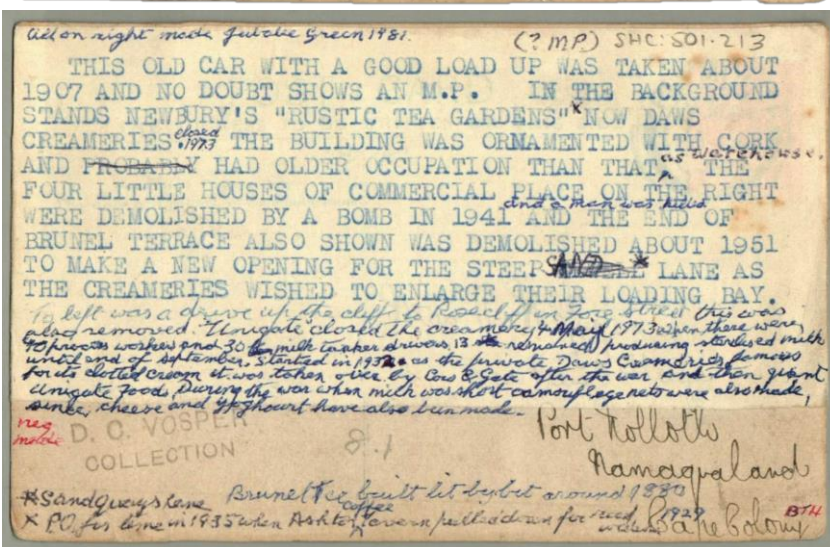 Add on right made Jubilee Green 1981.
(? M.P.) SHC: 501.213
THIS OLD CAR WITH A GOOD LOAD UP WAS TAKEN ABOUT
1907 AND NO DOUBT SHOWS AN M.P. IN THE BACKGROUND
STANDS NEWBURY'S "RUSTIC TEA GARDENS" x NOW DAWS
CREAMERIES. closed 1973 THE BUILDING WAS ORNAMENTED WITH CORK
AND PROBABLY HAD OLDER OCCUPATION THAN THAT as warehouse. THE
FOUR LITTLE HOUSES OF COMMERCIAL PLACE ON THE RIGHT
WERE DEMOLISHED BY A BOMB IN 1941 and a man was killed AND THE END OF
BRUNEL TERRACE ALSO SHOWN WAS DEMOLISHED ABOUT 1951
TO MAKE A NEW OPENING FOR THE STEEP * LANE AS
THE CREAMERIES WISHED TO ENLARGE THEIR LOADING BAY.
To left was a drive up the cliff to Rosecliff in Fore Street this was
also removed. Unigate closed the creamery, 4 May 1973 when there were
90 process workers and 30 milk tanker drivers, 13 remained producing sterilised milk
until end of September. Started in as the private Daws Creameries, famous
for its clotted cream it was taken over by Cow & Gate after the war, and then giant
Unigate Foods. During the war when milk was short camouflage nets were also made,
since, cheese and Yoghourt have also been made.
neg
made
D. C. VOSPER
COLLECTION
8.1
Port Nolloth
Namaqualand
Cape Colony
BTH
* Sandquays Lane Brunel Tce built bit by bit around 1880
x P.O. for time in 1935 when Ashton coffee tavern pulled down for road 1929